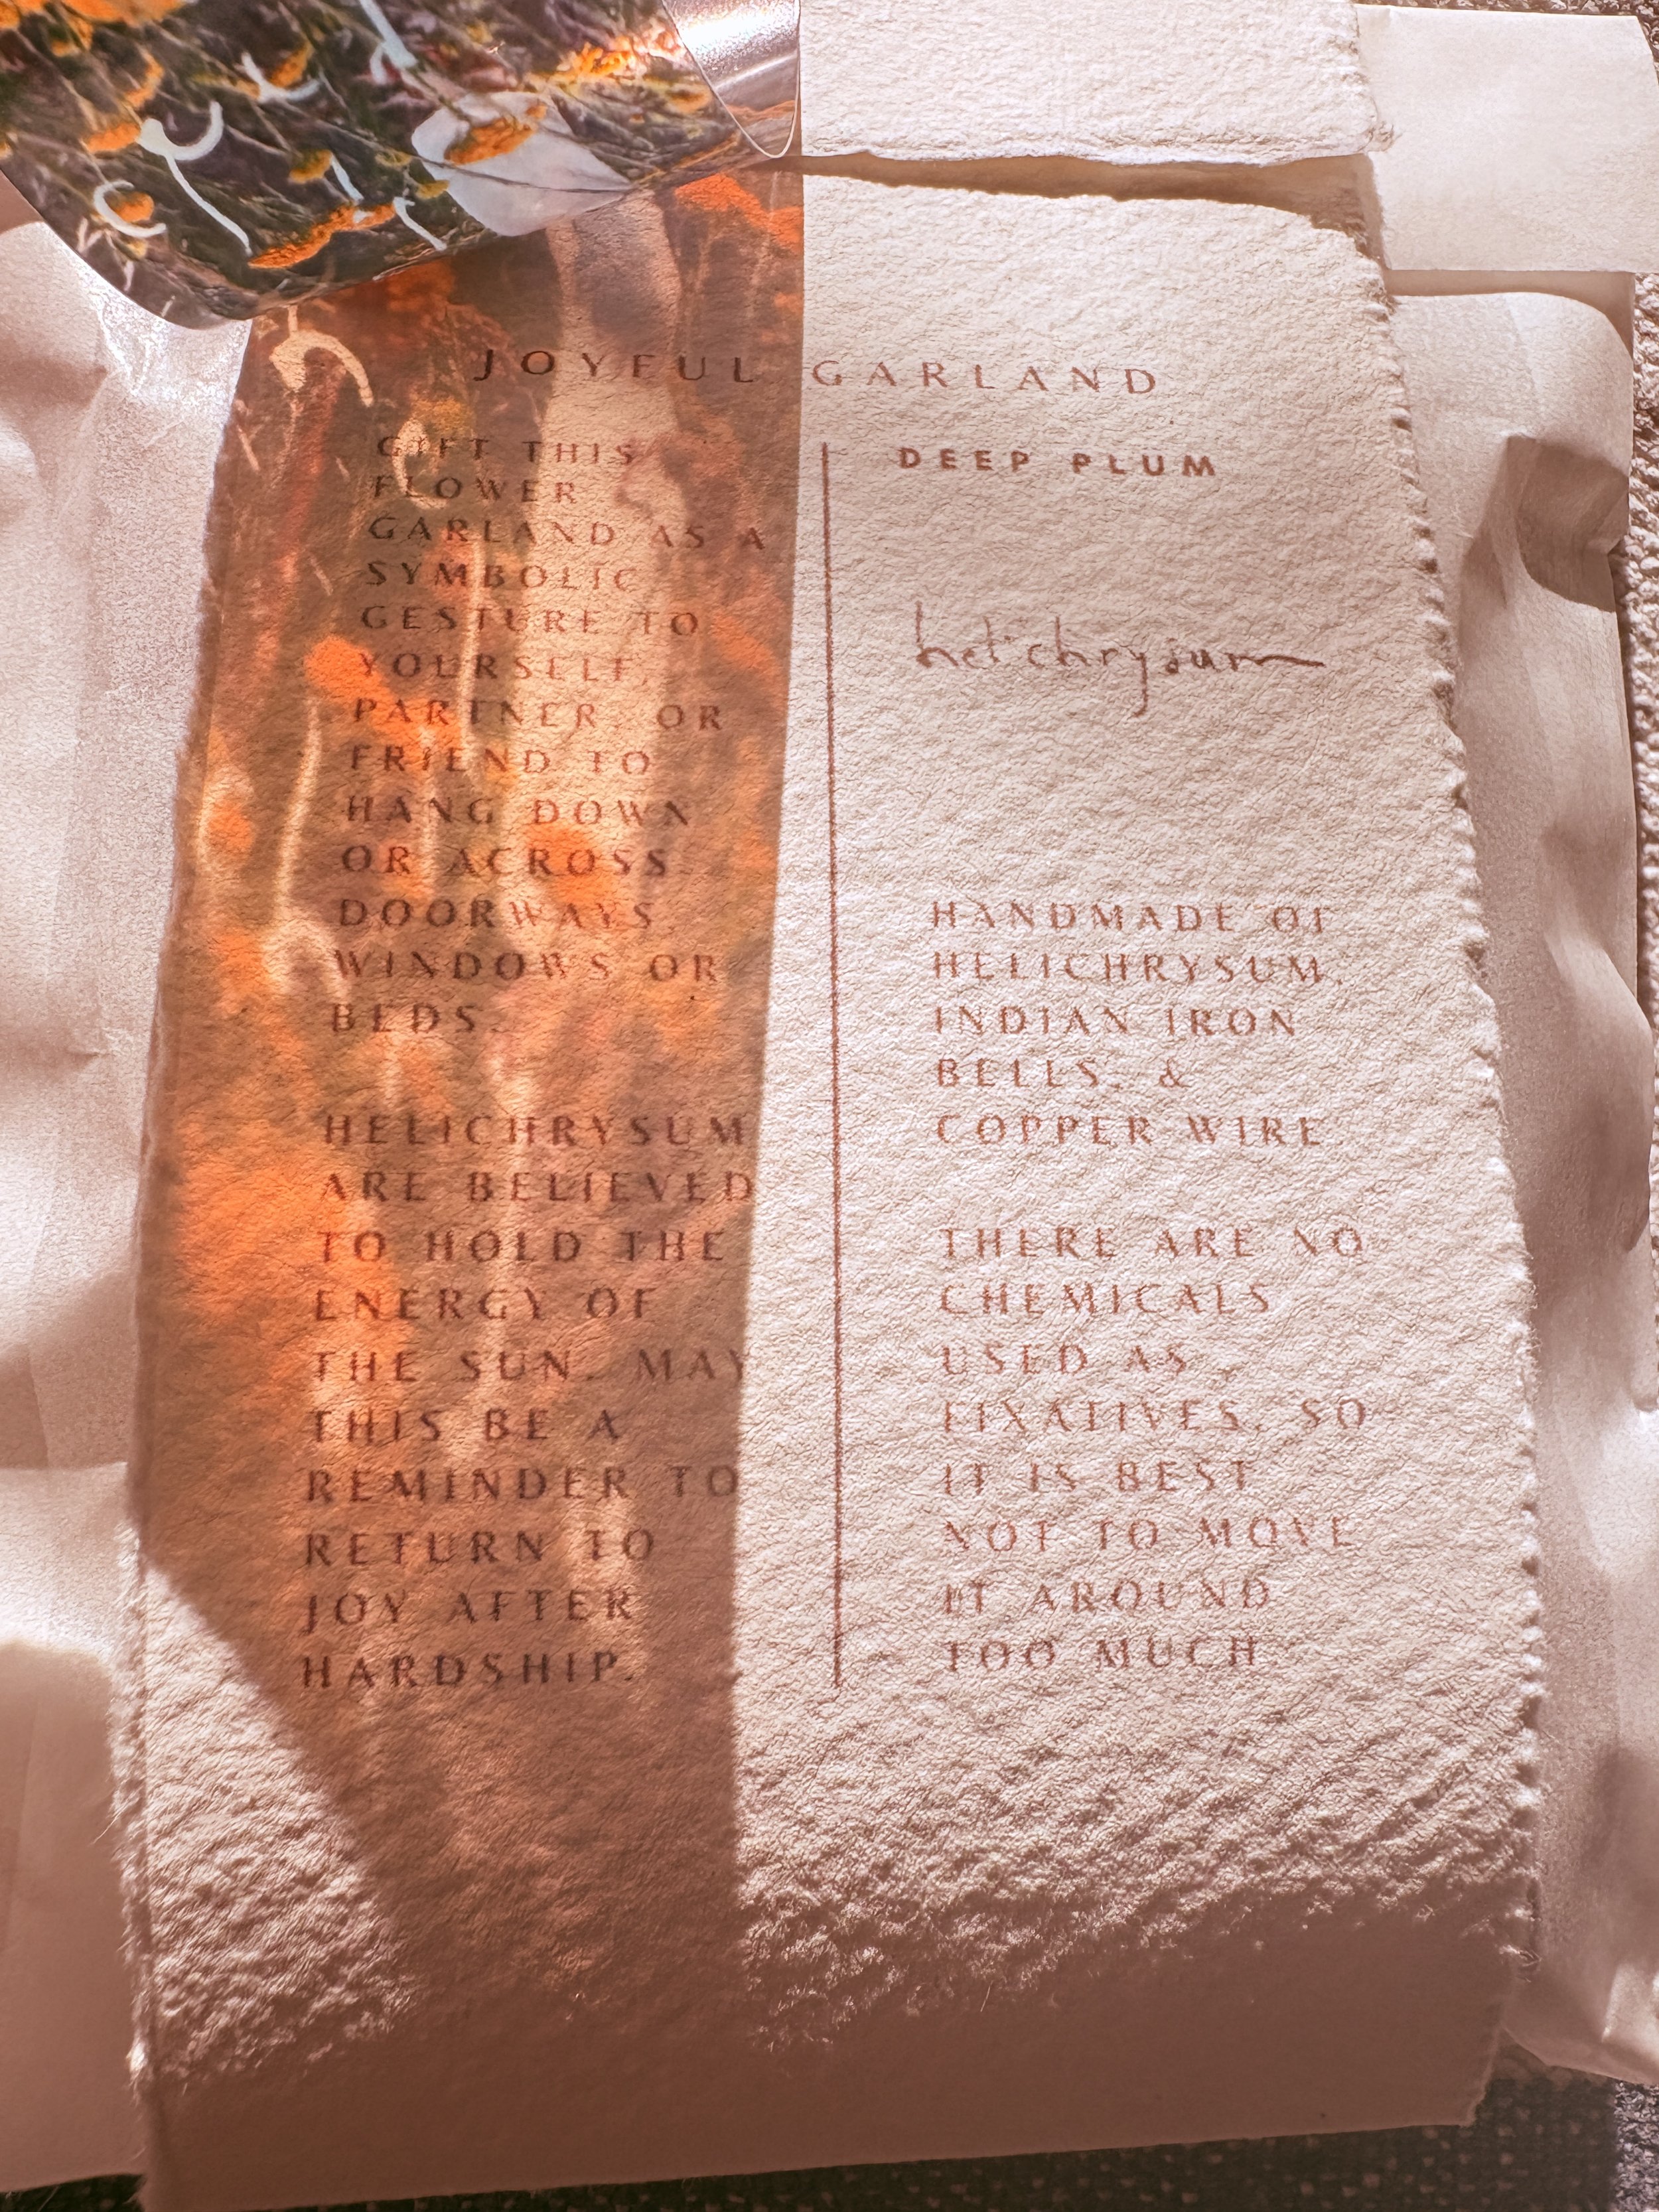 JOYFUL GARLAND
GIFT THIS
FLOWER
GARLAND AS A
SYMBOLIC
GESTURE TO
YOURSELF,
PARTNER, OR
FRIEND TO
HANG DOWN
OR ACROSS
DOORWAYS,
WINDOWS OR
BEDS.
HELICHRYSUM
ARE BELIEVED
TO HOLD THE
ENERGY OF
THE SUN. MAY
THIS BE A
REMINDER TO
RETURN TO
JOY AFTER
HARDSHIP.
DEEP PLUM
helichrysum
HANDMADE OF
HELICHRYSUM,
INDIAN IRON
BELLS, &
COPPER WIRE.
THERE ARE NO
CHEMICALS
USED AS
FIXATIVES, SO
IT IS BEST
NOT TO MOVE
IT AROUND
TOO MUCH.